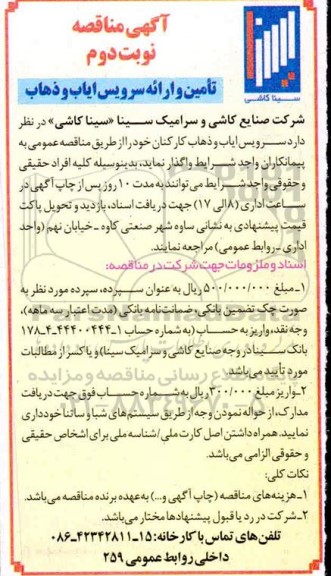 آگهی مناقصه
نوبت دوم
تأمین و ارائه سرویس ایاب و ذهاب
سینا کاشی
شرکت صنایع کاشی و سرامیک سینا «سینا کاشی» در نظر
دارد سرویس ایاب و ذهاب کارکنان خود را از طریق مناقصه عمومی به
پیمانکاران واجد شرایط واگذار نماید، بدینوسیله کلیه افراد حقیقی
و حقوقی واجد شرایط می توانند به مدت ۱۰ روز پس از چاپ آگهی در
ساعت اداری (۸ الی ۱۷) جهت دریافت اسناد، بازدید و تحویل پاکت
قیمت پیشنهادی به نشانی ساوه شهر صنعتی کاوه - خیابان نهم (واحد
اداری - روابط عمومی) مراجعه نمایند.
اسناد و ملزومات جهت شرکت در مناقصه:
۱- مبلغ ۵۰۰/۰۰۰/۰۰۰ ریال به عنوان سپرده، سپرده مورد نظر به
صورت چک تضمین بانکی، ضمانت نامه بانکی (مدت اعتبار سه ماهه)،
وجه نقد، واریز به حساب (به شماره حساب ۱-۴۴۴۰۰۴۴۴-۴-۱۷۸
بانک سینا در وجه صنایع کاشی و سرامیک سینا) و یا کسر از مطالبات
مورد تأیید می باشد.
۲- واریز مبلغ ۳۰۰/۰۰۰ ریال به شماره حساب فوق جهت دریافت
مدارک، از حواله نمودن وجه از طریق سیستم های شبا و ساتنا خودداری
نمایید. همراه داشتن اصل کارت ملی/شناسه ملی برای اشخاص حقیقی
و حقوقی الزامی می باشد.
نکات کلی:
۱- هزینه های مناقصه (چاپ آگهی و...) به عهده برنده مناقصه می باشد.
۲- شرکت در رد یا قبول پیشنهادها مختار می باشد.
تلفن های تماس با کارخانه: ۱۵-۴۲۳۴۲۸۱۱-۰۸۶
داخلی روابط عمومی ۲۵۹